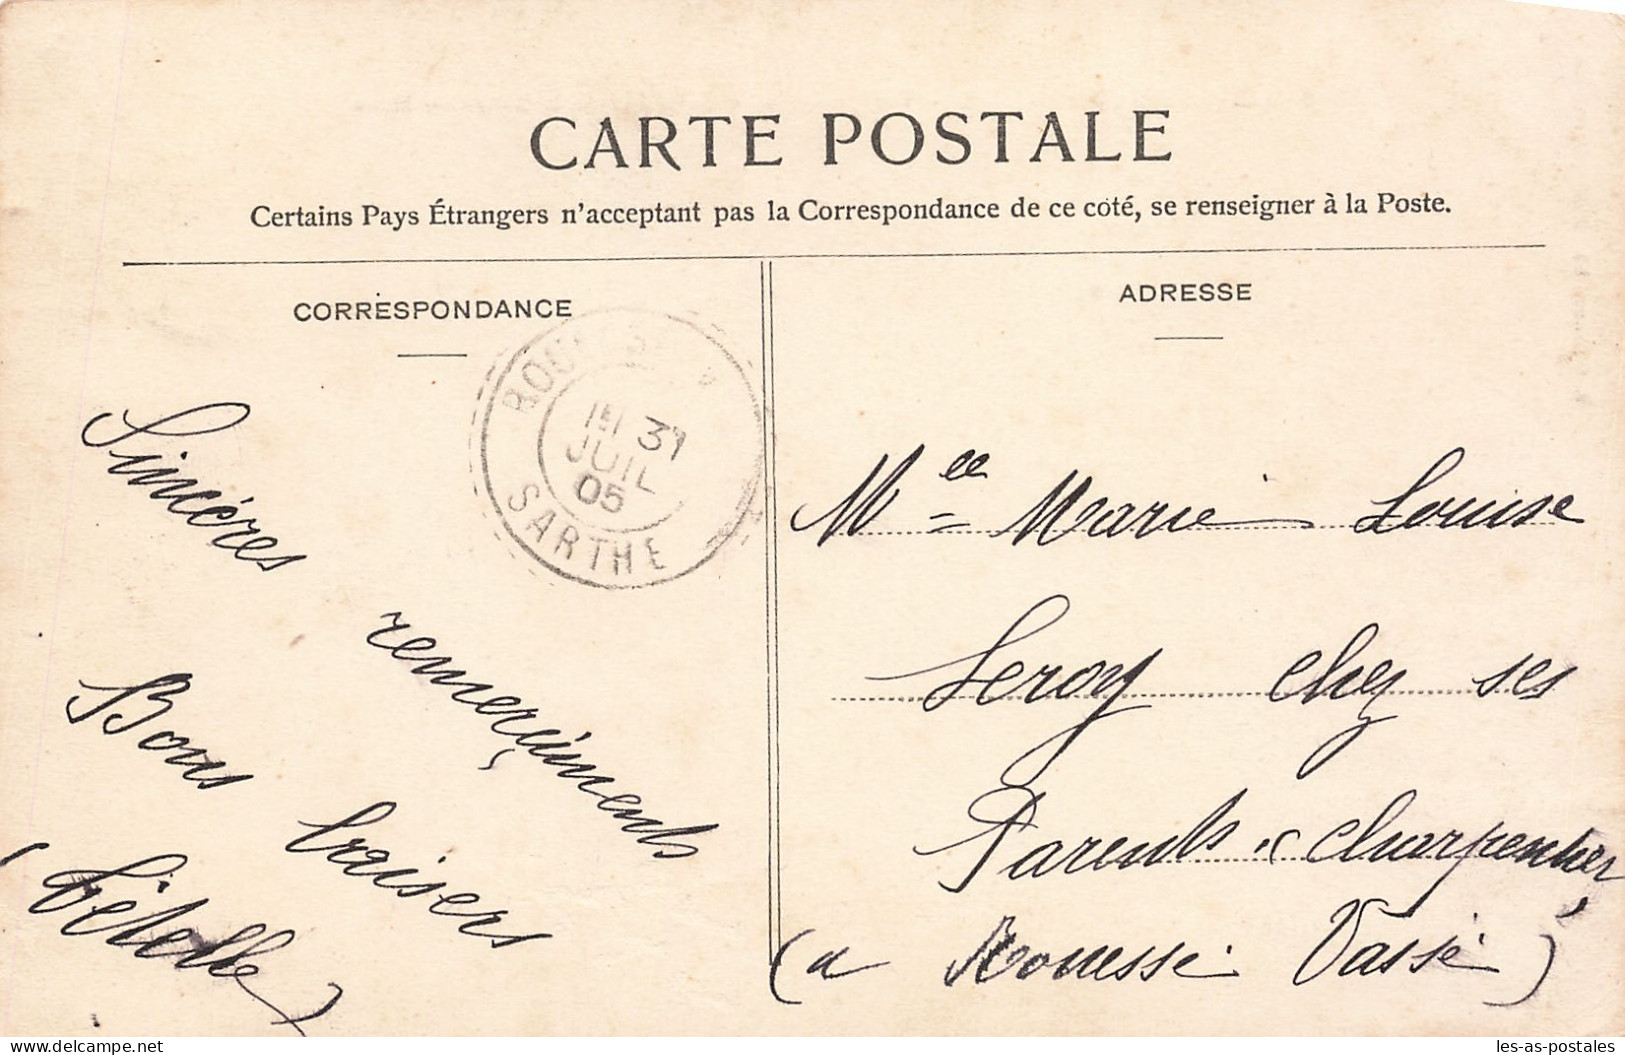 CARTE POSTALE
Certains Pays Étrangers n'acceptant pas la Correspondance de ce côté, se renseigner à la Poste.
CORRESPONDANCE
Sincères
remerçiments
Bons baisers
ADRESSE
Mlle Marie Louise
Leroy chez ses
Parents charpentier
(a Rouessé Vassé)
31
JUIL
05
SARTHE
delcampe.net
les-as-postales